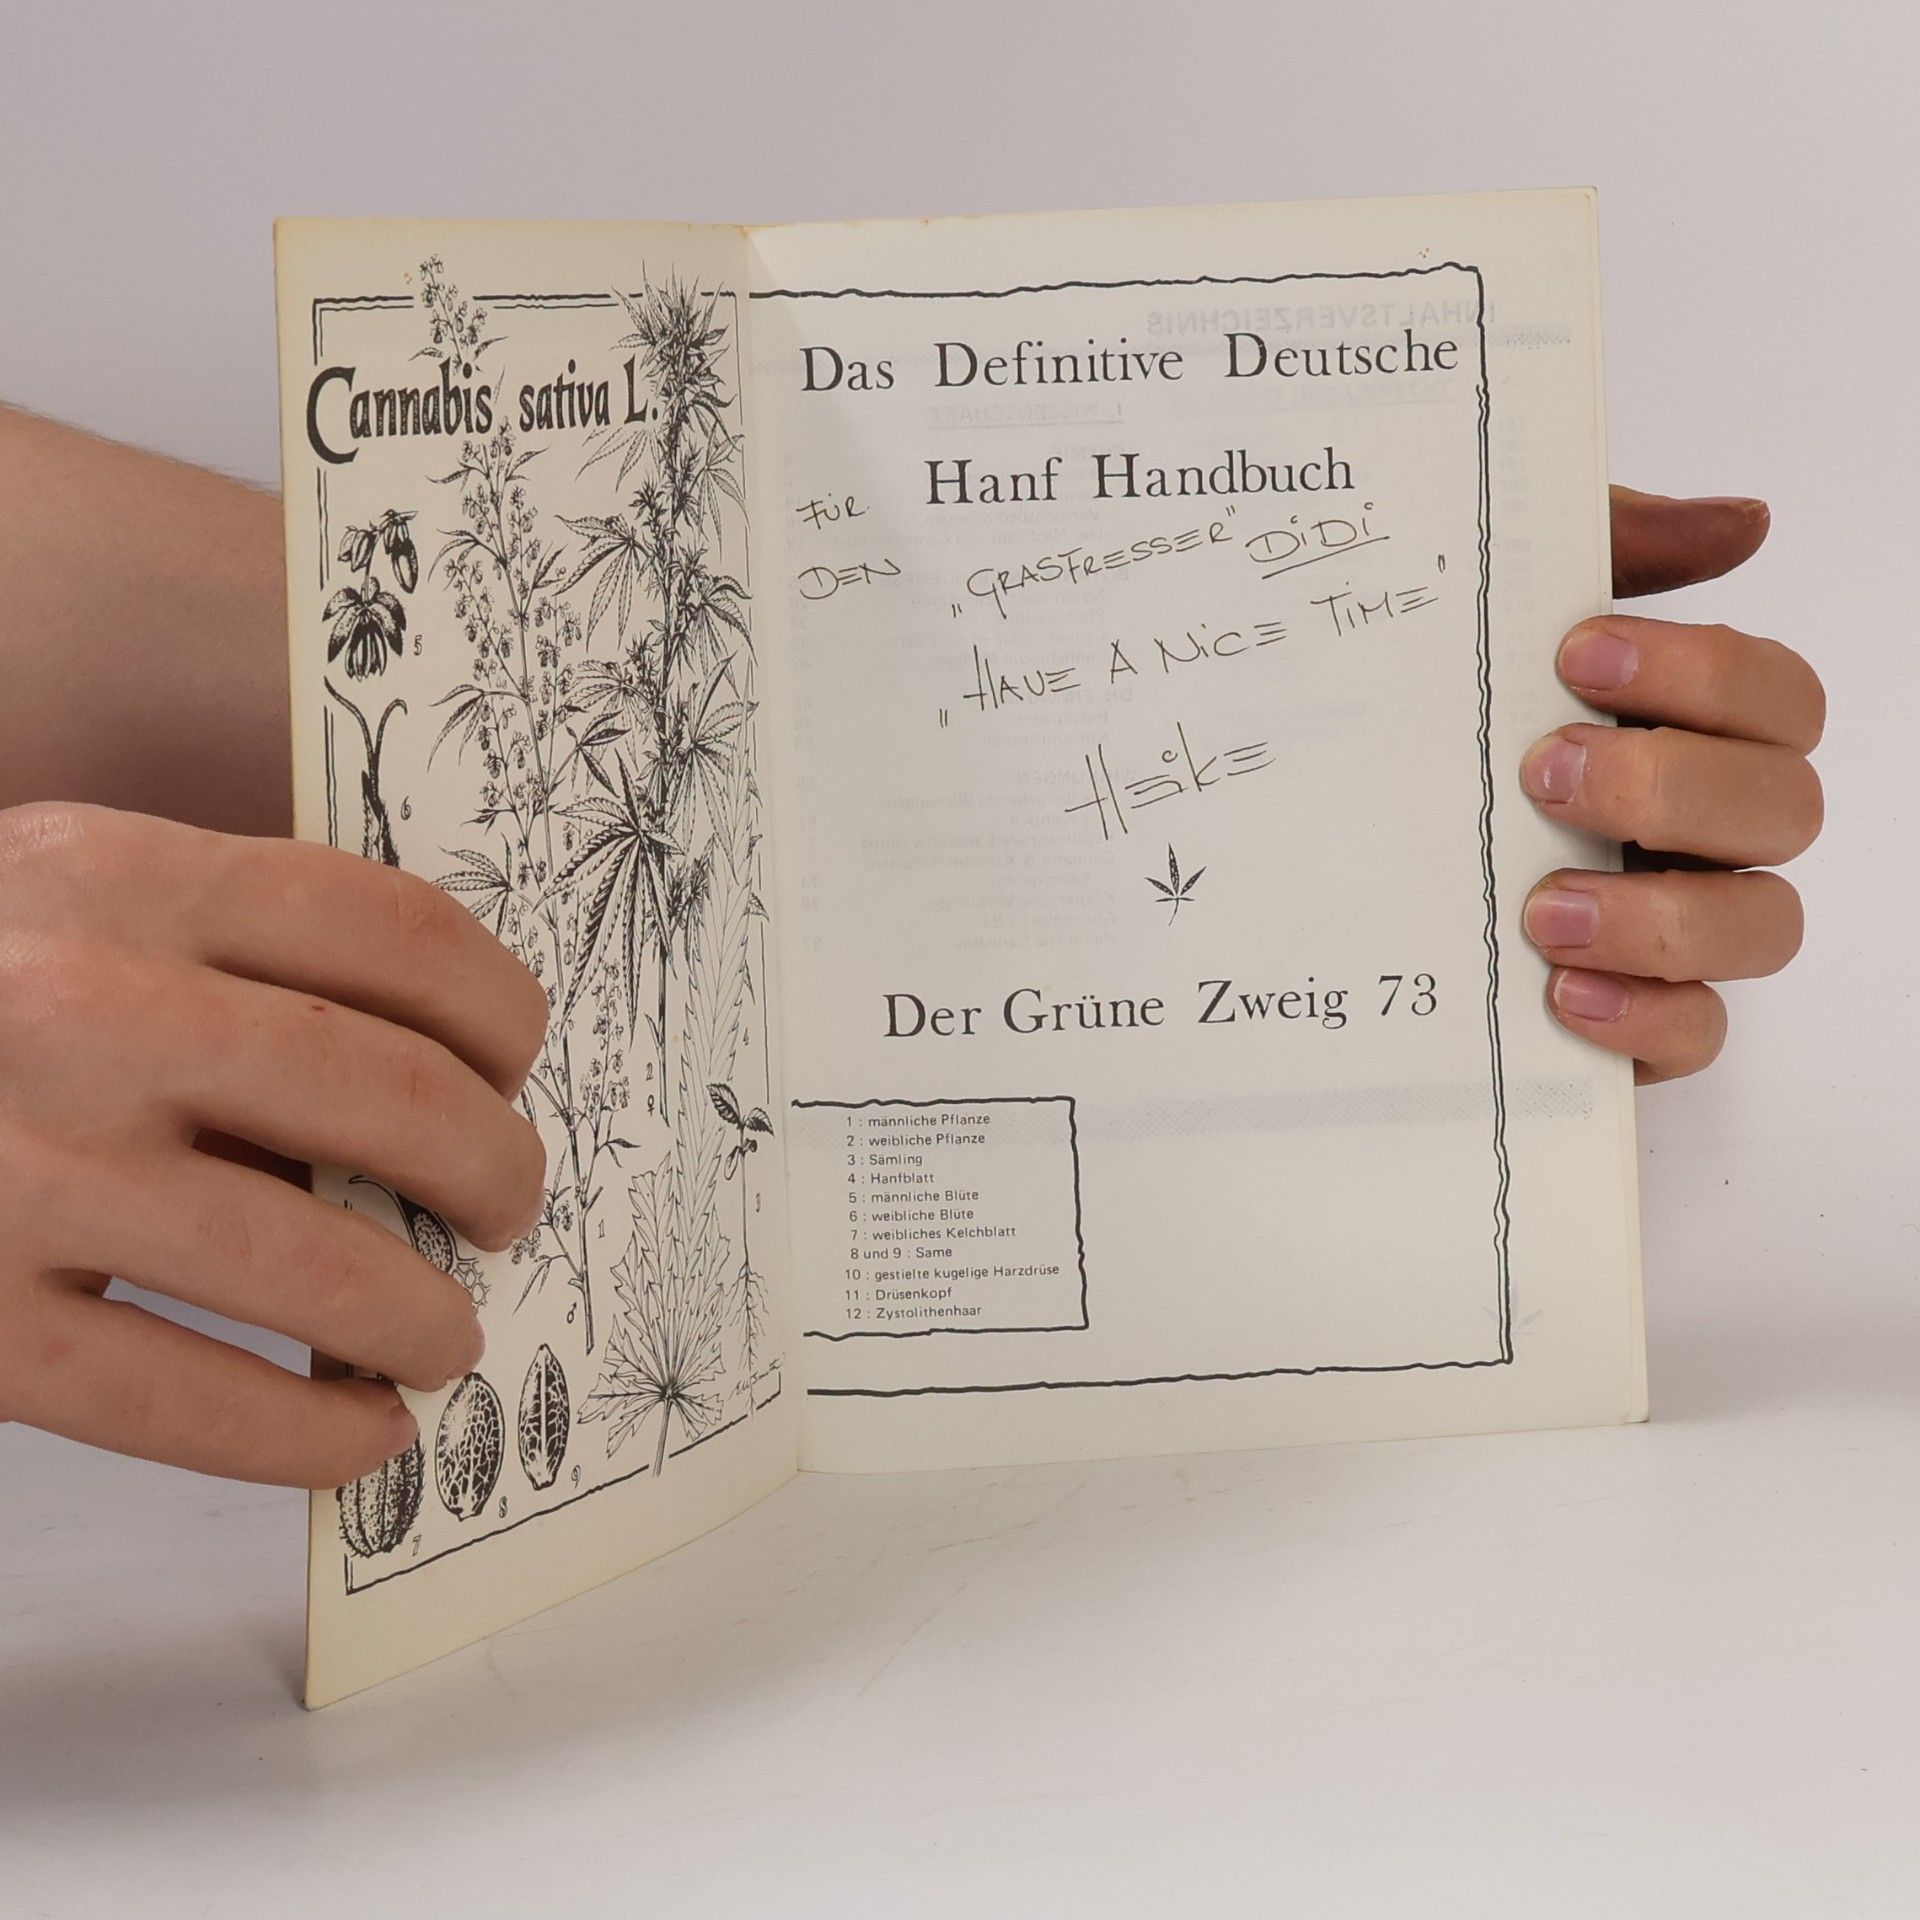 Cannabis sativa L.
5
6
4
2
♀
3
1
♂
9
8
7
Das Definitive Deutsche
Hanf Handbuch
FÜR
DEN „GRASFRESSER" DiDi
„HAVE A NiCE TiME"
HEiKE
Der Grüne Zweig 73
1 : männliche Pflanze
2 : weibliche Pflanze
3 : Sämling
4 : Hanfblatt
5 : männliche Blüte
6 : weibliche Blüte
7 : weibliches Kelchblatt
8 und 9 : Same
10 : gestielte kugelige Harzdrüse
11 : Drüsenkopf
12 : Zystolithenhaar
INHALTSVERZEICHNIS